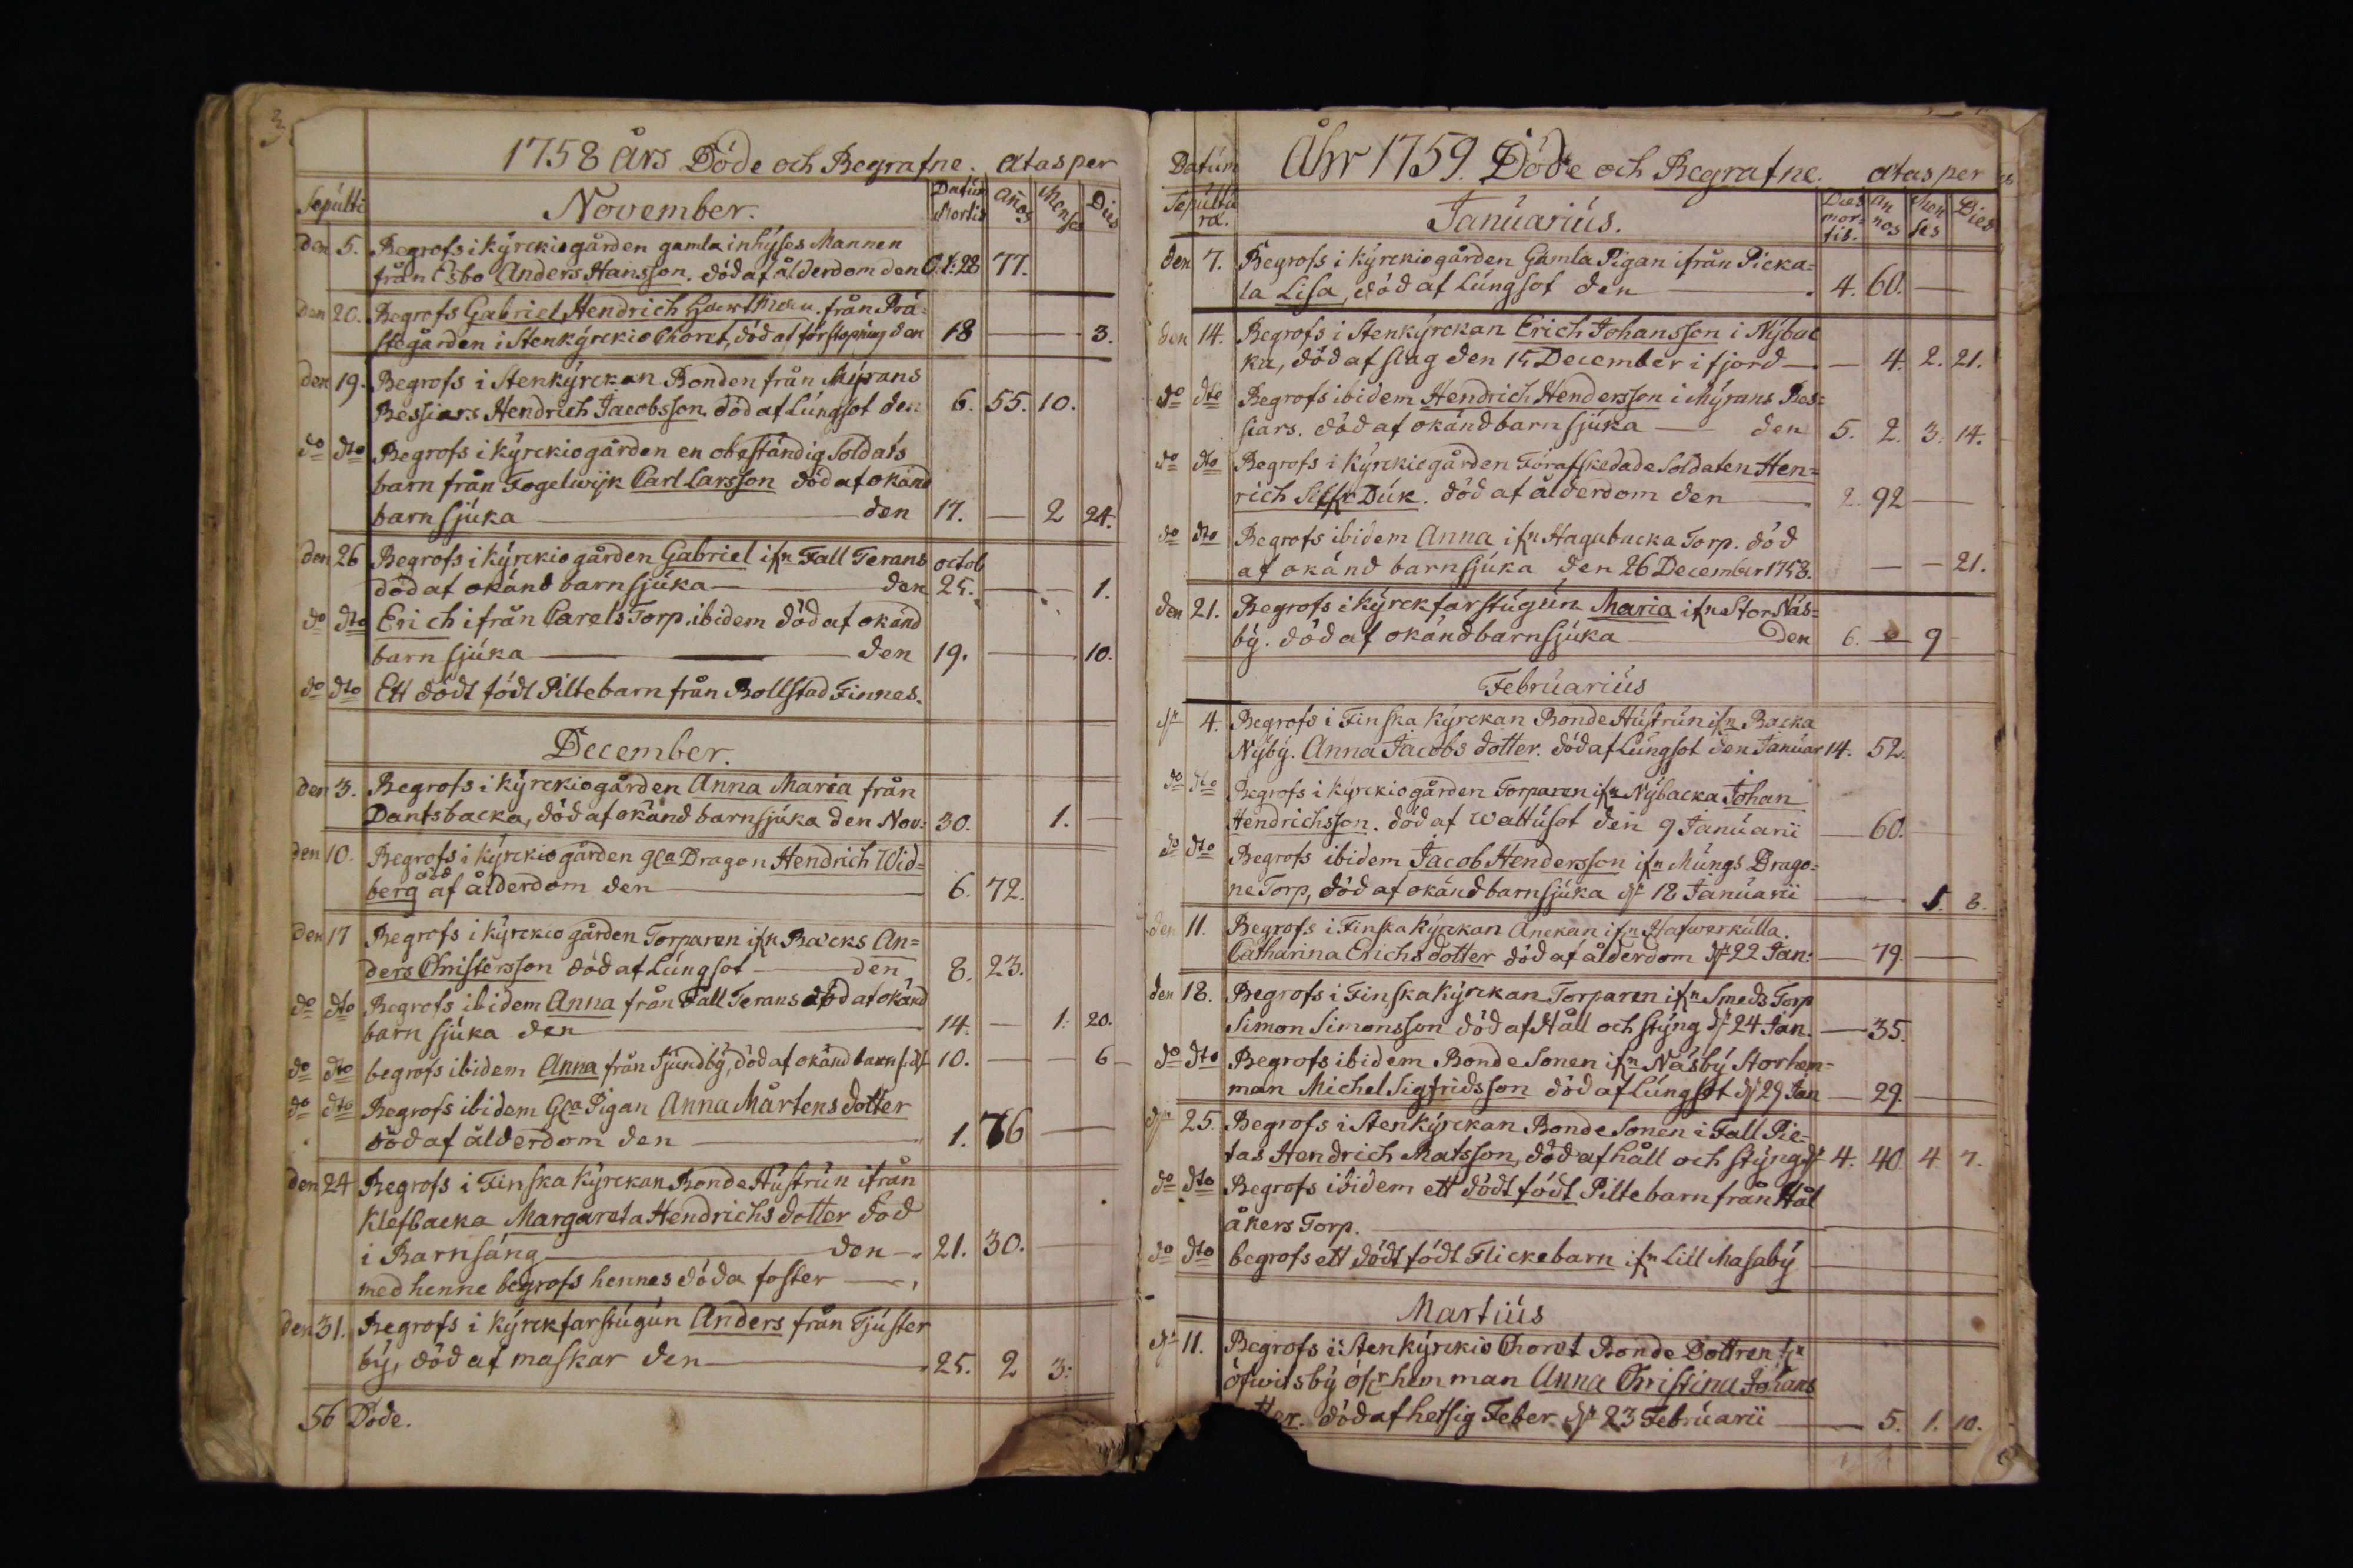 3
1758 Års Döde och Begrafne. Ætas per
Sepulti November. Datum Mortis Annos Menses Dies
den 5. Begrofs i kÿrckiogården gamla inhÿses Mannen
från Esbo Anders Hansson. död af ålderdom den O.t: 28 77.
den 20. Begrofs Gabriel Hendrich från Prä-
stegården i Stenkÿrckio Choret, död af förstopning den 18 — — 3.
den 19. Begrofs i Stenkÿrckan Bonden från Mÿrans
Bessiars Hendrich Jacobsson. död af Lungsot den 6. 55. 10.
do dto Begrofs i kÿrckiogården en obeständig Soldats
barn från Fogelwijk Carl Larsson död af okänd
barnsjuka — den 17. — 2 24.
den 26 Begrofs i kÿrckiogården Gabriel ifn Fall Terans octob
död af okänd barnsjuka — den 25. — — 1.
do dto Erich ifrån Carels Torp. ibidem död af okänd
barnsjuka — den 19. — 10.
do dto Ett dödt födt Piltebarn från Bollstad Finnes.
December.
den 3. Begrofs i kÿrckiogården Anna Maria från
Dantsbacka, död af okänd barnsjuka den Nov: 30. 1. —
den 10. Begrofs i kÿrckiogården gla Dragon Hendrich Wid-
berg död af ålderdom den — 6. 72.
den 17 Begrofs i kÿrckiogården Torparen ifn Backs An=
ders Christersson död af Lungsot — den 8. 23.
do dto Begrofs ibidem Anna från Fall Terans död af okänd
barnsjuka den — 14. — 1. 20.
do dto begrofs ibidem Anna från Sjundbÿ, död af okänd barns: d. 10. — — 6 —
do dto Begrofs ibidem Gla Pigan Anna Mårtens dotter
död af ålderdom den — 1. 76 —
den 24 Begrofs i Finska kÿrckan Bonde Hustrun ifrån
Klefbacka Margareta Hendrichs dotter död
i Barnsäng — den 21. 30. —
med henne begrofs hennes döda foster —
den 31. Begrofs i kÿrckfarstugun Anders från Tjuster
bÿ, död af maskar den — 25. 2 3:
56 Döde.
Datum Åhr 1759. Döde och Begrafne. Ætas per
Sepultu
ræ. Januarius. Dies mor- tis. An nos Men ses Dies
den 7. Begrofs i kÿrckiogården Gamla Pigan ifrån Picka=
la Lisa, död af lungsot den — 4. 60. —
den 14. Begrofs i Stenkÿrckan Erich Johansson i Nÿbac
ka, död af slag den 15 December i fjord — — 4. 2. 21.
do dto Begrofs ibidem Hendrich Hendersson i Mÿrans Bes=
siars. död af okänd barnsjuka — den 5. 2. 3. 14.
do dto Begrofs i kÿrckiogården Förafskedade Soldaten Hen=
rich Silfr Duk. död af ålderdom den — 2. 92 —
do dto Begrofs ibidem Anna ifn Hagabacka Torp. död
af okänd barnsjuka den 26 December 1758. — — 21.
den 21. Begrofs i kÿrckfarstugun Maria ifn Stor Näs=
bÿ. död af okänd barnsjuka — den 6. — 9
Februarius
dn 4. Begrofs i Finska kÿrckan Bonde Hustrun ifn Backa
Nÿbÿ. Anna Jacobs dotter. död af Lungsot den Januar 14. 52.
do dto Begrofs i kÿrckiogården Torparen ifn Nÿbacka Johan
Hendrichsson. död af wattusot den 9 Januarii — 60.
do dto Begrofs ibidem Jacob Hendersson ifn Mungs Drago=
ne Torp, död af okänd barnsjuka dn 18 Januarii — — 1. 8.
den 11. Begrofs i Finska kÿrckan Änckan ifn Hafwerkulla.
Catharina Erichs dotter död af ålderdom dn 22 Jan: — 79. —
den 18. Begrofs i Finska kÿrckan Torparen ifn Smeds Torp
Simon Simonsson död af Håll och stÿng dn 24 Jan. — 35.
do dto Begrofs ibidem Bonde Sonen ifn Näsbÿ Storhem-
man Michel Sigfridsson död af Lungsot dn 29 Jan — 29. —
dn 25. Begrofs i Stenkÿrckan Bonde Sonen i Fall Pie-
tas Hendrich Matsson, död af håll och stÿng dn 4. 40. 4 7.
do dto Begrofs ibidem ett dödt födt Piltebarn från Hål
åkers Torp. —
do dto begrofs ett dödt födt Flickebarn ifn Lill Masabÿ
Martius
dn 11. Begrofs i Stenkÿrckio Choret Bonde Dottren ifn
öfwitsbÿ öfr hemman Anna Christina Johans
tter. död af hetsig Feber dn 23 Februarii — 5. 1. 10.